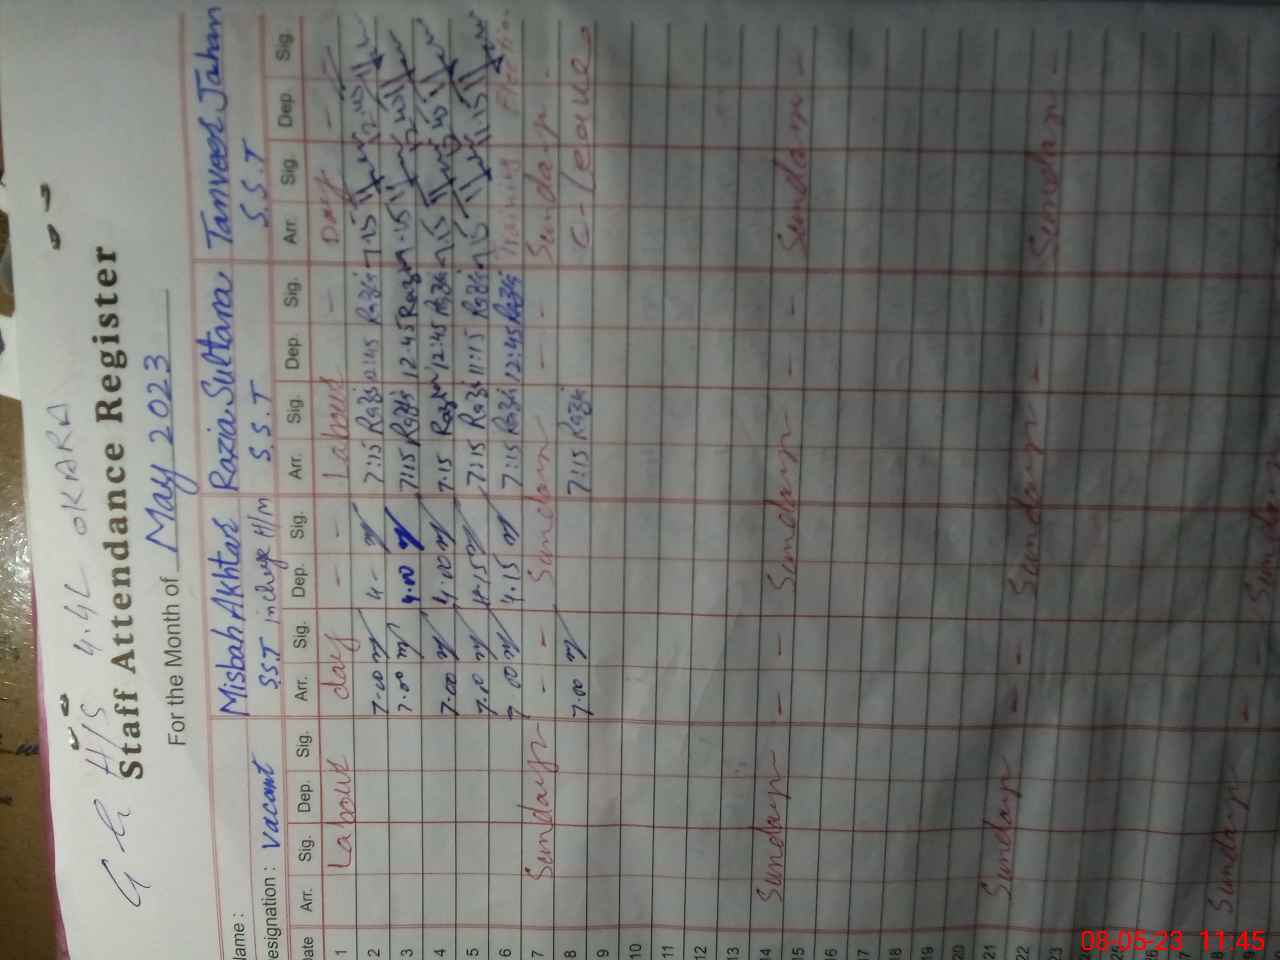 G G H/S 4.4L OKARA
Staff Attendance Register
For the Month of May 2023
Name : Misbah Akhtar Razia Sultana Tanveer Jahan
Designation : vacant S.S.T incharge H/M S.S.T S.S.T
Date Arr. Sig. Dep. Sig. Arr. Sig. Dep. Sig. Arr. Sig. Dep. Sig. Arr. Sig. Dep. Sig.
1 Labour day - - Labour - Day - -
2 7-00 4- 7:15 Razia 12:45 Razia 7-15
3 7.00 4.00 7:15 Razia 12.45 Razia 7-15
4 7.00 4.00 7.15 Razia 12:45 Razia 7.15
5 7.00 7:15 Razia 11:15 Razia 7.15 11.15
6 7 00 4.15 7:15 Razia 12:45 Razia Training
7 Sunday - - Sunday - - Sunday -
8 7.00 7:15 Razia C-Leave
9
10
11
12
13
14 Sunday - - Sunday - - Sunday -
15
16
17
18
19
20
21 Sunday - - Sunday - - Sunday -
22
23
24
25
26
27
28 Sunday - - Sunday
08-05-23 11:45